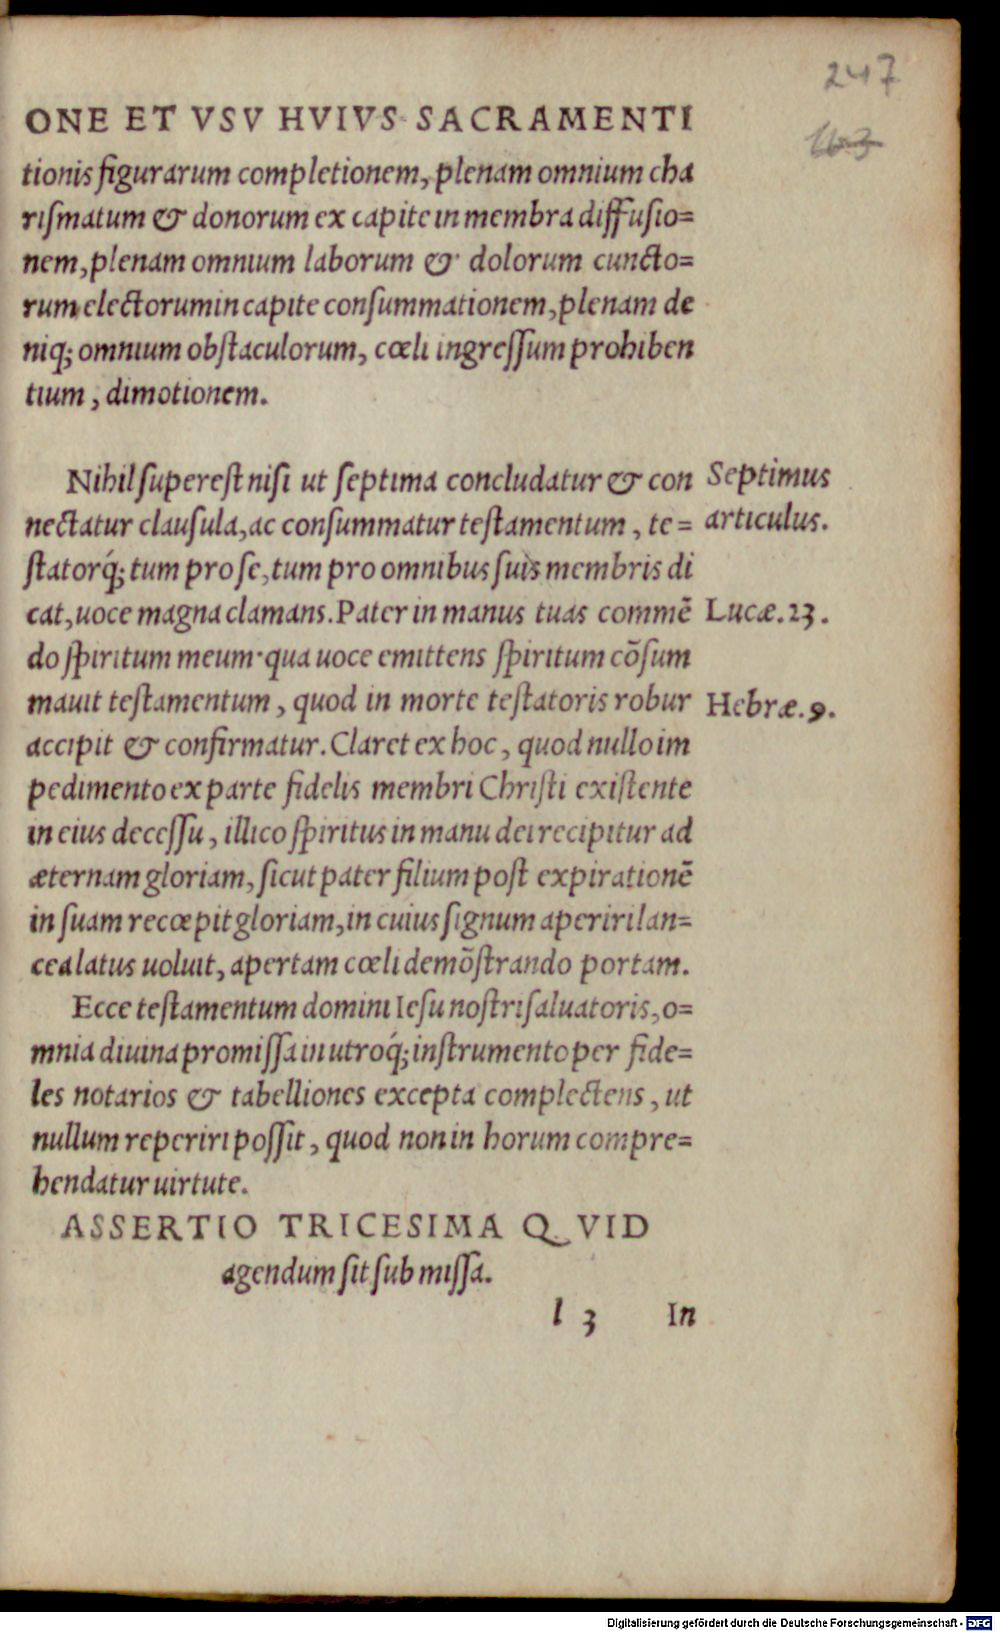 247
163
ONE ET VSV HVIVS SACRAMENTI
tionis figurarum completionem, plenam omnium cha
riſmatum & donorum ex capite in membra diffuſio=
nem, plenam omnium laborum & dolorum cuncto=
rum electorum in capite conſummationem, plenam de
niq; omnium obſtaculorum, cœli ingreſſum prohiben
tium, dimotionem.
Nihil ſupereſt niſi ut ſeptima concludatur & con
Septimus
nectatur clauſula, ac conſummatur teſtamentum, te=
articulus.
ſtatorq́; tum pro ſe, tum pro omnibus ſuis membris di
cat, uoce magna clamans. Pater in manus tuas commē
Lucæ. 23.
do ſpiritum meum· qua uoce emittens ſpiritum cōſum
mauit teſtamentum, quod in morte teſtatoris robur
Hebræ. 9.
accipit & confirmatur. Claret ex hoc, quod nullo im
pedimento ex parte fidelis membri Chriſti exiſtente
in eius deceſſu, illico ſpiritus in manu dei recipitur ad
æternam gloriam, ſicut pater filium poſt expirationē
in ſuam recœpit gloriam, in cuius ſignum aperiri lan=
cea latus uoluit, apertam cœli demōſtrando portam.
Ecce teſtamentum domini Ieſu noſtri ſaluatoris, o=
mnia diuina promiſſa in utroq́; inſtrumento per fide=
les notarios & tabelliones excepta complectens, ut
nullum reperiri poſſit, quod non in horum compre=
hendatur uirtute.
ASSERTIO TRICESIMA QVID
agendum ſit ſub miſſa.
l 3 In
Digitalisierung gefördert durch die Deutsche Forschungsgemeinschaft - DFG